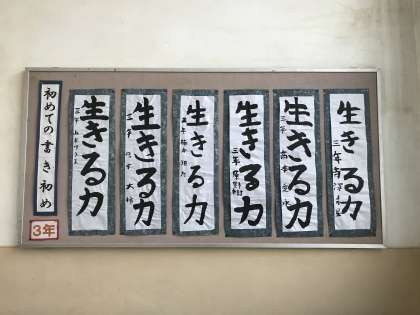 初めての書き初め
3年
生きる力
三年
生きる力
三年
生きる力
三年
生きる力
三年
生きる力
三年
生きる力
三年